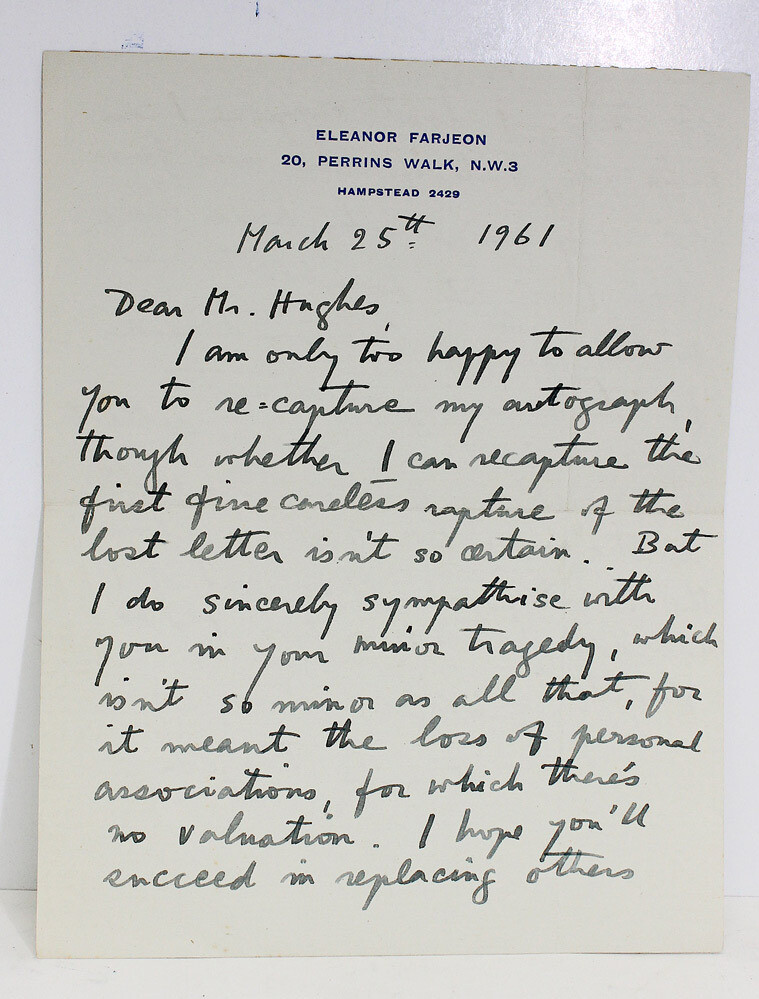 ELEANOR FARJEON
20, PERRINS WALK, N.W.3
HAMPSTEAD 2429
March 25th 1961
Dear Mr. Hughes,
I am only too happy to allow
you to re=capture my autograph,
though whether I can recapture the
first fine careless rapture of the
lost letter isn't so certain. But
I do sincerely sympathise with
you in your minor tragedy, which
isn't so minor as all that, for
it meant the loss of personal
associations, for which there's
no valuation. I hope you'll
succeed in replacing others